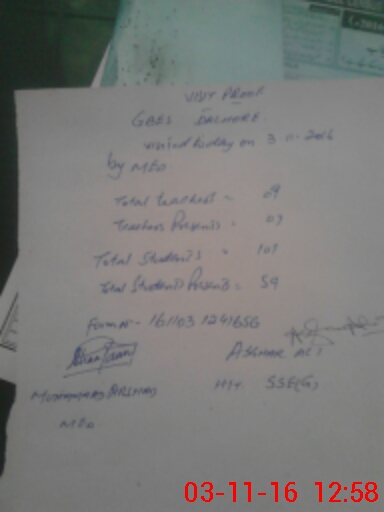 VISIT PROOF
GBES DALHORE
visited today on 3-11-2016
by MEA
Total Teachers = 09
Teachers Presents = 07
Total Students = 101
Total Students Presents = 59
Form no - 161103 1241656
ASGHAR ALI
MUHAMMAD ARSHAD
H/T SSE(G)
MEA
03-11-16 12:58